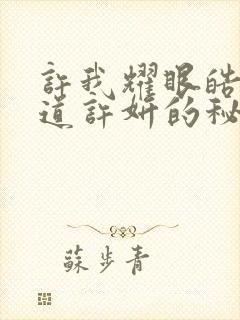 許我耀眼皓
道許妍的秘
蘇步青